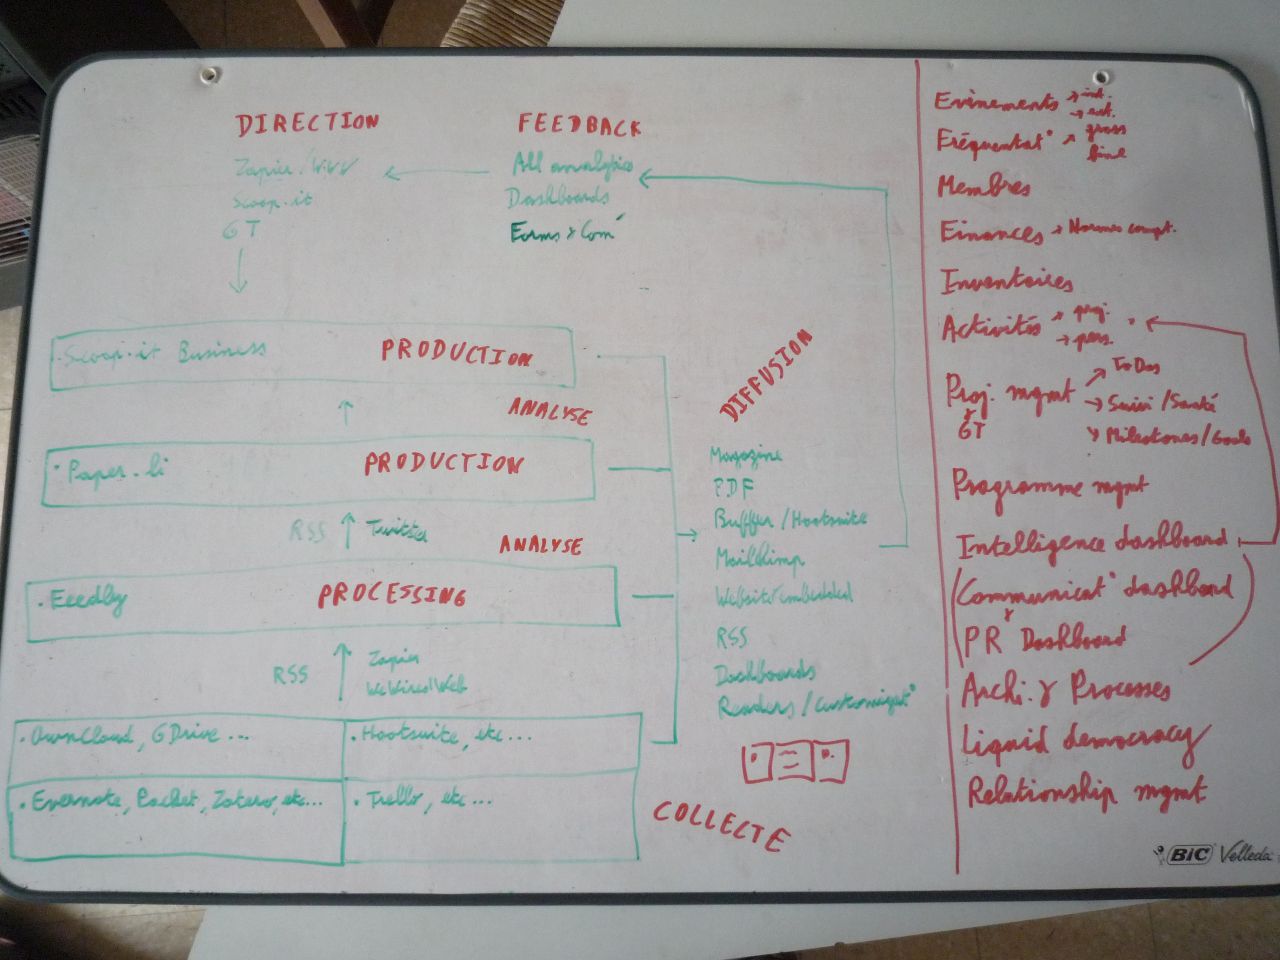 DIRECTION
Zapier/
Scoop.it
GT
FEEDBACK
All analytics
Dashboards
Forms & Com°
.Scoop.it Business
PRODUCTION
ANALYSE
.Paper.li
PRODUCTION
RSS
Twitter
ANALYSE
.Feedly
PROCESSING
RSS
Zapier
WeWiredWeb
.OwnCloud, GDrive ...
.Hootsuite, etc...
.Evernote, Pocket, Zotero, etc...
.Trello, etc...
COLLECTE
DIFFUSION
Magazine
PDF
Buffer/Hootsuite
Mailchimp
Website embedded
RSS
Dashboards
Readers/Customizat°
Evènements → int.
→ ext.
Fréquentat° → gross
fine
Membres
Finances → Normes compt.
Inventaires
Activités → proj.
→ pers.
Proj. mgmt
GT
ToDos
Suivi/Santé
Milestones/Goals
Programme mgmt
Intelligence dashboard
Communicat° dashboard
PR Dashboard
Archi. & Processes
Liquid democracy
Relationship mgmt
BIC Velleda